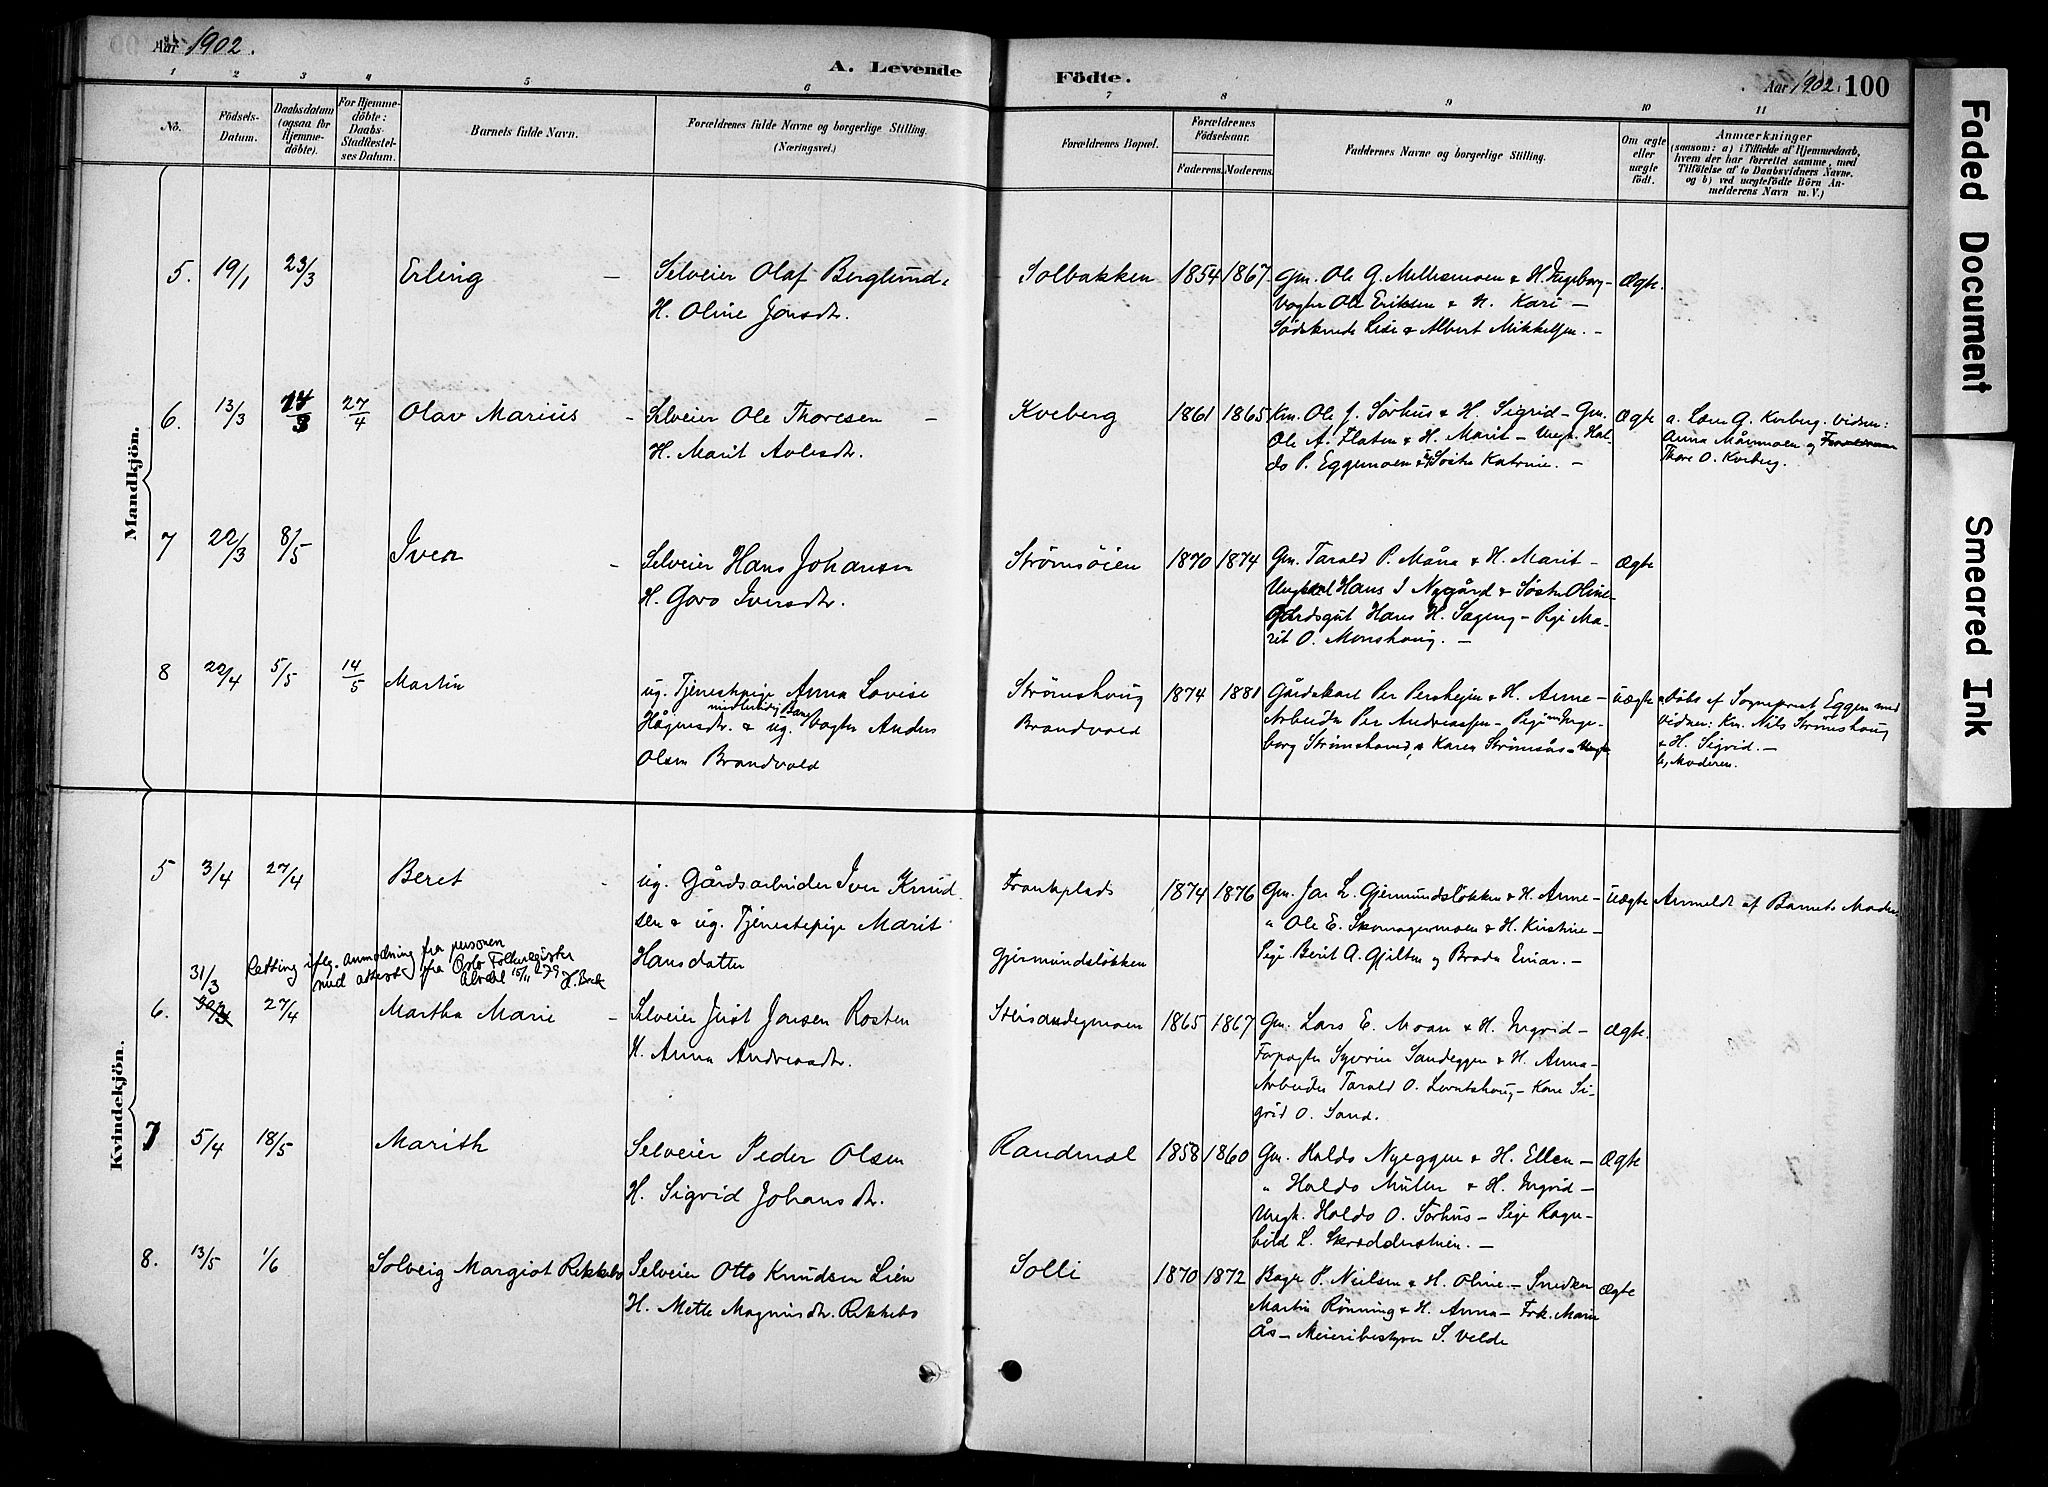 Aar 1902.
A. Levende Födte.
Aar 1902. 100
1 2 3 4 5 6 7 8 9 10 11
No.
Födsels-Datum.
Daabsdatum (ogsaa for Hjemme-döbte).
For Hjemme-döbte: Daabs-Stadfæstel-ses Datum.
Barnets fulde Navn.
Forældrenes fulde Navne og borgerlige Stilling.
(Næringsvei.)
Forældrenes Bopæl.
Forældrenes Födselsaar.
Faderens. Moderens.
Faddernes Navne og borgerlige Stilling.
Om ægte eller uægte födt.
Anmærkninger
(saasom: a) i Tilfælde af Hjemmedaab,
hvem der har forrettet samme, med
Tilföielse af to Daabsvidners Navne.
og b) ved uægtefödte Börn An-
melderens Navn m. V.)
Mandkjön.
5. 19/1 23/3 Erling – Selveier Olaf Berglund
H. Oline Jonsdtr.
Solbakken 1854 1867
Gm. Ole G. Mellesmoen & H. Ingeborg –
Vogter Ole Eriksen & H. Kari –
Lise & Albert Mikkelsen. –
Ægte.
6. 13/3 27/4 Olav Marius – Selveier Ole Thoresen –
H. Marit
Kveberg 1861 1865
Km. Ole J. Sörhus & H. Sigrid – Gm.
Ole A. Flaten & H. Marit – Ungk. Hal-
do P. Eggemoen & Söster Katrine. –
Ægte
a. G. Kveberg. Vidner:
Anna og
Thore O. Kveberg.
7 22/3 8/5 Iver – Selveier Hans Johansen
H. Goro Iversdtr.
Strömsöien 1870 1874
Gm. Tarald P. Måna & H. Marit –
Ungkarl Hans I Nygård & Söster Oline –
Gårdsgut Hans H. Sageng – Pige Ma-
rit O. Monshaug. –
Ægte
8 22/4 5/5 14/5 Martin
ug. Tjenestepige Anna Lovise
Hågensdtr. & ug. Vogter Anders
Olsen Brandvold
Strömshaug
Brandvold
1874 1881
Gårdskarl Per Pershejen & H. Anne –
Arbeider Per Andreassen – Pige Inge-
borg & Karen Strömsås –
Uægte
a Döbt af Sogneprest Eggen med
Vidner: Km. Nils Strömshaug
& H. Sigrid. –
b, Moderen.
Kvindekjön.
5 3/4 27/4 Beret –
ug. Gårdsarbeider Iver Knud-
sen & ug. Tjenestepige Marit
Hansdatter
Frankplads
Gjermundslökken
1874 1876
Gm. Jon L. Gjermundslökken & H. Anne –
" Ole E. Skomagermoen & H. Kirstine –
Pige Berit A. Gjelten og Broder Einar. –
Uægte
Anmeldt af Barnets Moder
Retting iflg. anmodning fra personen
med attest fra Oslo Folkeregister
Alvdal 15/11 279
31/3
6. 30/3 27/4 Martha Marie – Selveier Jost Jonsen Rosten
H. Anna Andreasdtr.
Steisandegmoen 1865 1867
Gm. Lars E. Moan & H. Ingrid –
Forpagter Syver Sandeggen & H. Anna –
Arbeider Tarald O. – Kone Si-
grid O. Sand.
ægte.
7 5/4 18/5 Marith
Selveier Peder Olsen
H. Sigrid Johansdtr.
Randmæl 1858 1860
Gm. Haldo Nyeggen & H. Ellen –
" Haldo Müller & H. Ingrid –
Ungk. Haldo O. Sörhus – Pige Ragn-
hild L. Skræddertrøen. –
Ægte
8. 13/5 1/6 Solveig Margiot Rekkebo
Selveier Otto Knudsen Lien
H. Mette Magnusdtr. Rekkebo
Solli 1870 1872
Bager P. Neilsen & H. Oline – Snedker
Martin Rönning & H. Anna – Frk. Marie
Ås – Meieribestyrer S. Velde
Ægte
Faded Document
Smeared Ink